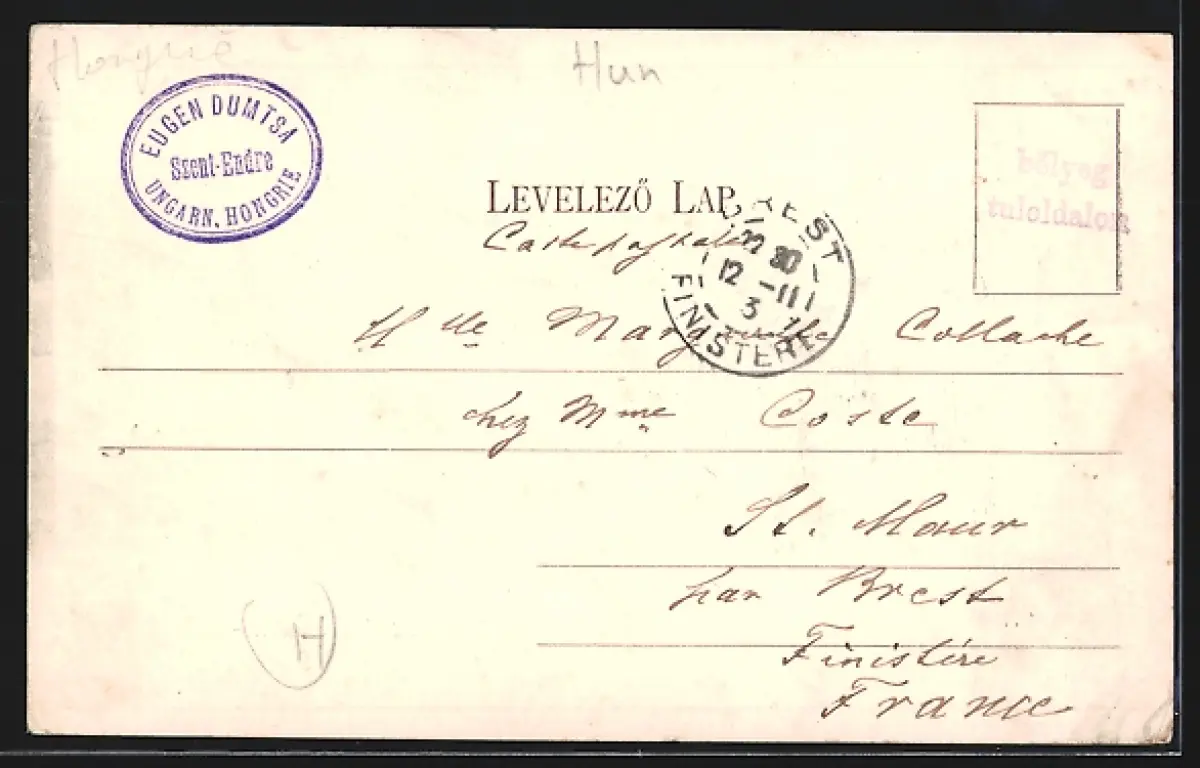 Hongrie
Hun
EUGEN DUMTSA
Szent-Endre
UNGARN, HONGRIE
bélyeg
tuloldalon
LEVELEZŐ LAP
BREST
22 30
12 -11
3
FINISTERE
Mlle Marguerite Collache
chez Mme Coste
St. Maur
par Brest
Finistére
France
H